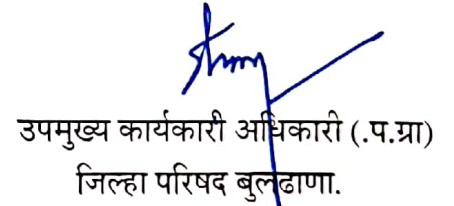 उपमुख्य कार्यकारी अधिकारी (.प.ग्रा)
जिल्हा परिषद बुलढाणा.